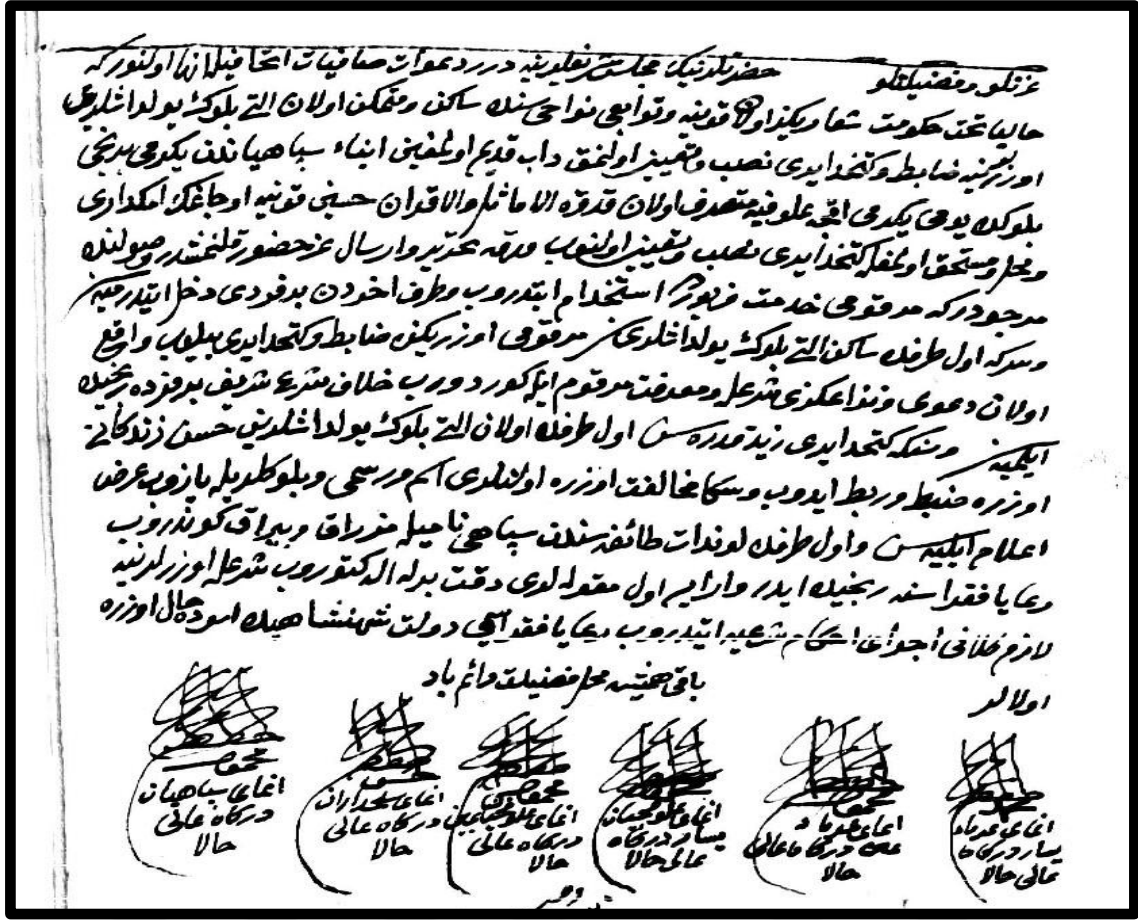 عزتلو وفضيلتلو حضرتلرينك مجلس شريفلرينه درر دعوات صافيات اتحافيله انها اولنور كه
حاليا تحت حكومت شعاريكزده اولان قونيه وتوابعى نواحيسنده ساكن ومتمكن اولان التى بلوك يولداشلرى
اوزرلرينه ضابط وكتخدايرى نصب وتعيين اولنمق داب قديم اولمغين ابناء سپاهياندن يكرمى برنجى
بلوكده يومى يكرمى اقچه علوفه‌يه متصرف اولان قدوة الاماثل والاقران حسين قونيه اوجاغك امكدارى
ومحل ومستحق اولمغله كتخدايرى نصب وتعيين اولنوب ورقه تحرير وارسال عز حضور قلنمشدر وصولنده
مرجودر كه مرقومى خدمت مزبورده استخدام ايتدروب وطرف اخردن بر فردى دخل ايتدرميه‌سز
وسز كه اول طرفده ساكن التى بلوك يولداشلرى سز مرقومى اوزريكزه ضابط وكتخدايرى بيلوب واقع
اولان دعوى ونزاعكزى شرعله ومعرفت مرقوم ايله كوردوروب خلاف شرع شريف بر فرده رنجيده
ايلميه‌سز وسنكه كتخدايرى زيد قدره سن اول طرفده اولان التى بلوك يولداشلرينى حسن زندكانى
اوزره ضبط وربط ايدوب وسكا مخالفت اوزره اولانلرى اسم ورسمى وبلوكلريله يازوب عرض
اعلام ايليه‌سن واول طرفده لوندات طائفه‌سندن سپاهى ناميله مزراق وبيراق كوندروب
رعايا فقراسنه رنجيده ايدر وار ايسه اول مقوله‌لرى دقت برله الدكتوروب شرعله اوزرلرينه
لازم كلانى اجراى احكام شرعيه ايتدروب رعايا فقراسى دولت شهنشاهيده اسوده حال اوزره
اولالر باقى همیشه محل فضيلت دائم باد
اغاى غرباء يسار دركاه عالى حالا
اغاى غرباء يمين دركاه عالى حالا
اغاى علوفجيان يسار دركاه عالى حالا
اغاى علوفجيان يمين دركاه عالى حالا
اغاى سلحداران دركاه عالى حالا
اغاى سپاهيان دركاه عالى حالا